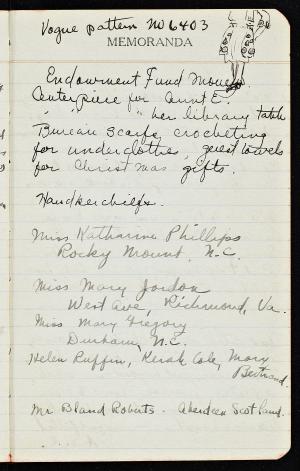 Vogue pattern No 6403
MEMORANDA
Endowment Fund Money
Centerpiece for Aunt E.
" " " her library table
Bureau scarfs, crocheting
for underclothes, guest towels
for Christmas gifts.
Handkerchiefs.
Miss Katharine Phillips
Rocky Mount, N.C.
Miss Mary Jordon
West Ave, Richmond, Va.
Miss Mary Gregory
Durham, N.C.
Helen Ruffin, Cole, Mary
Bertrand.
Mr Bland Roberts. Aberdeen Scotland.